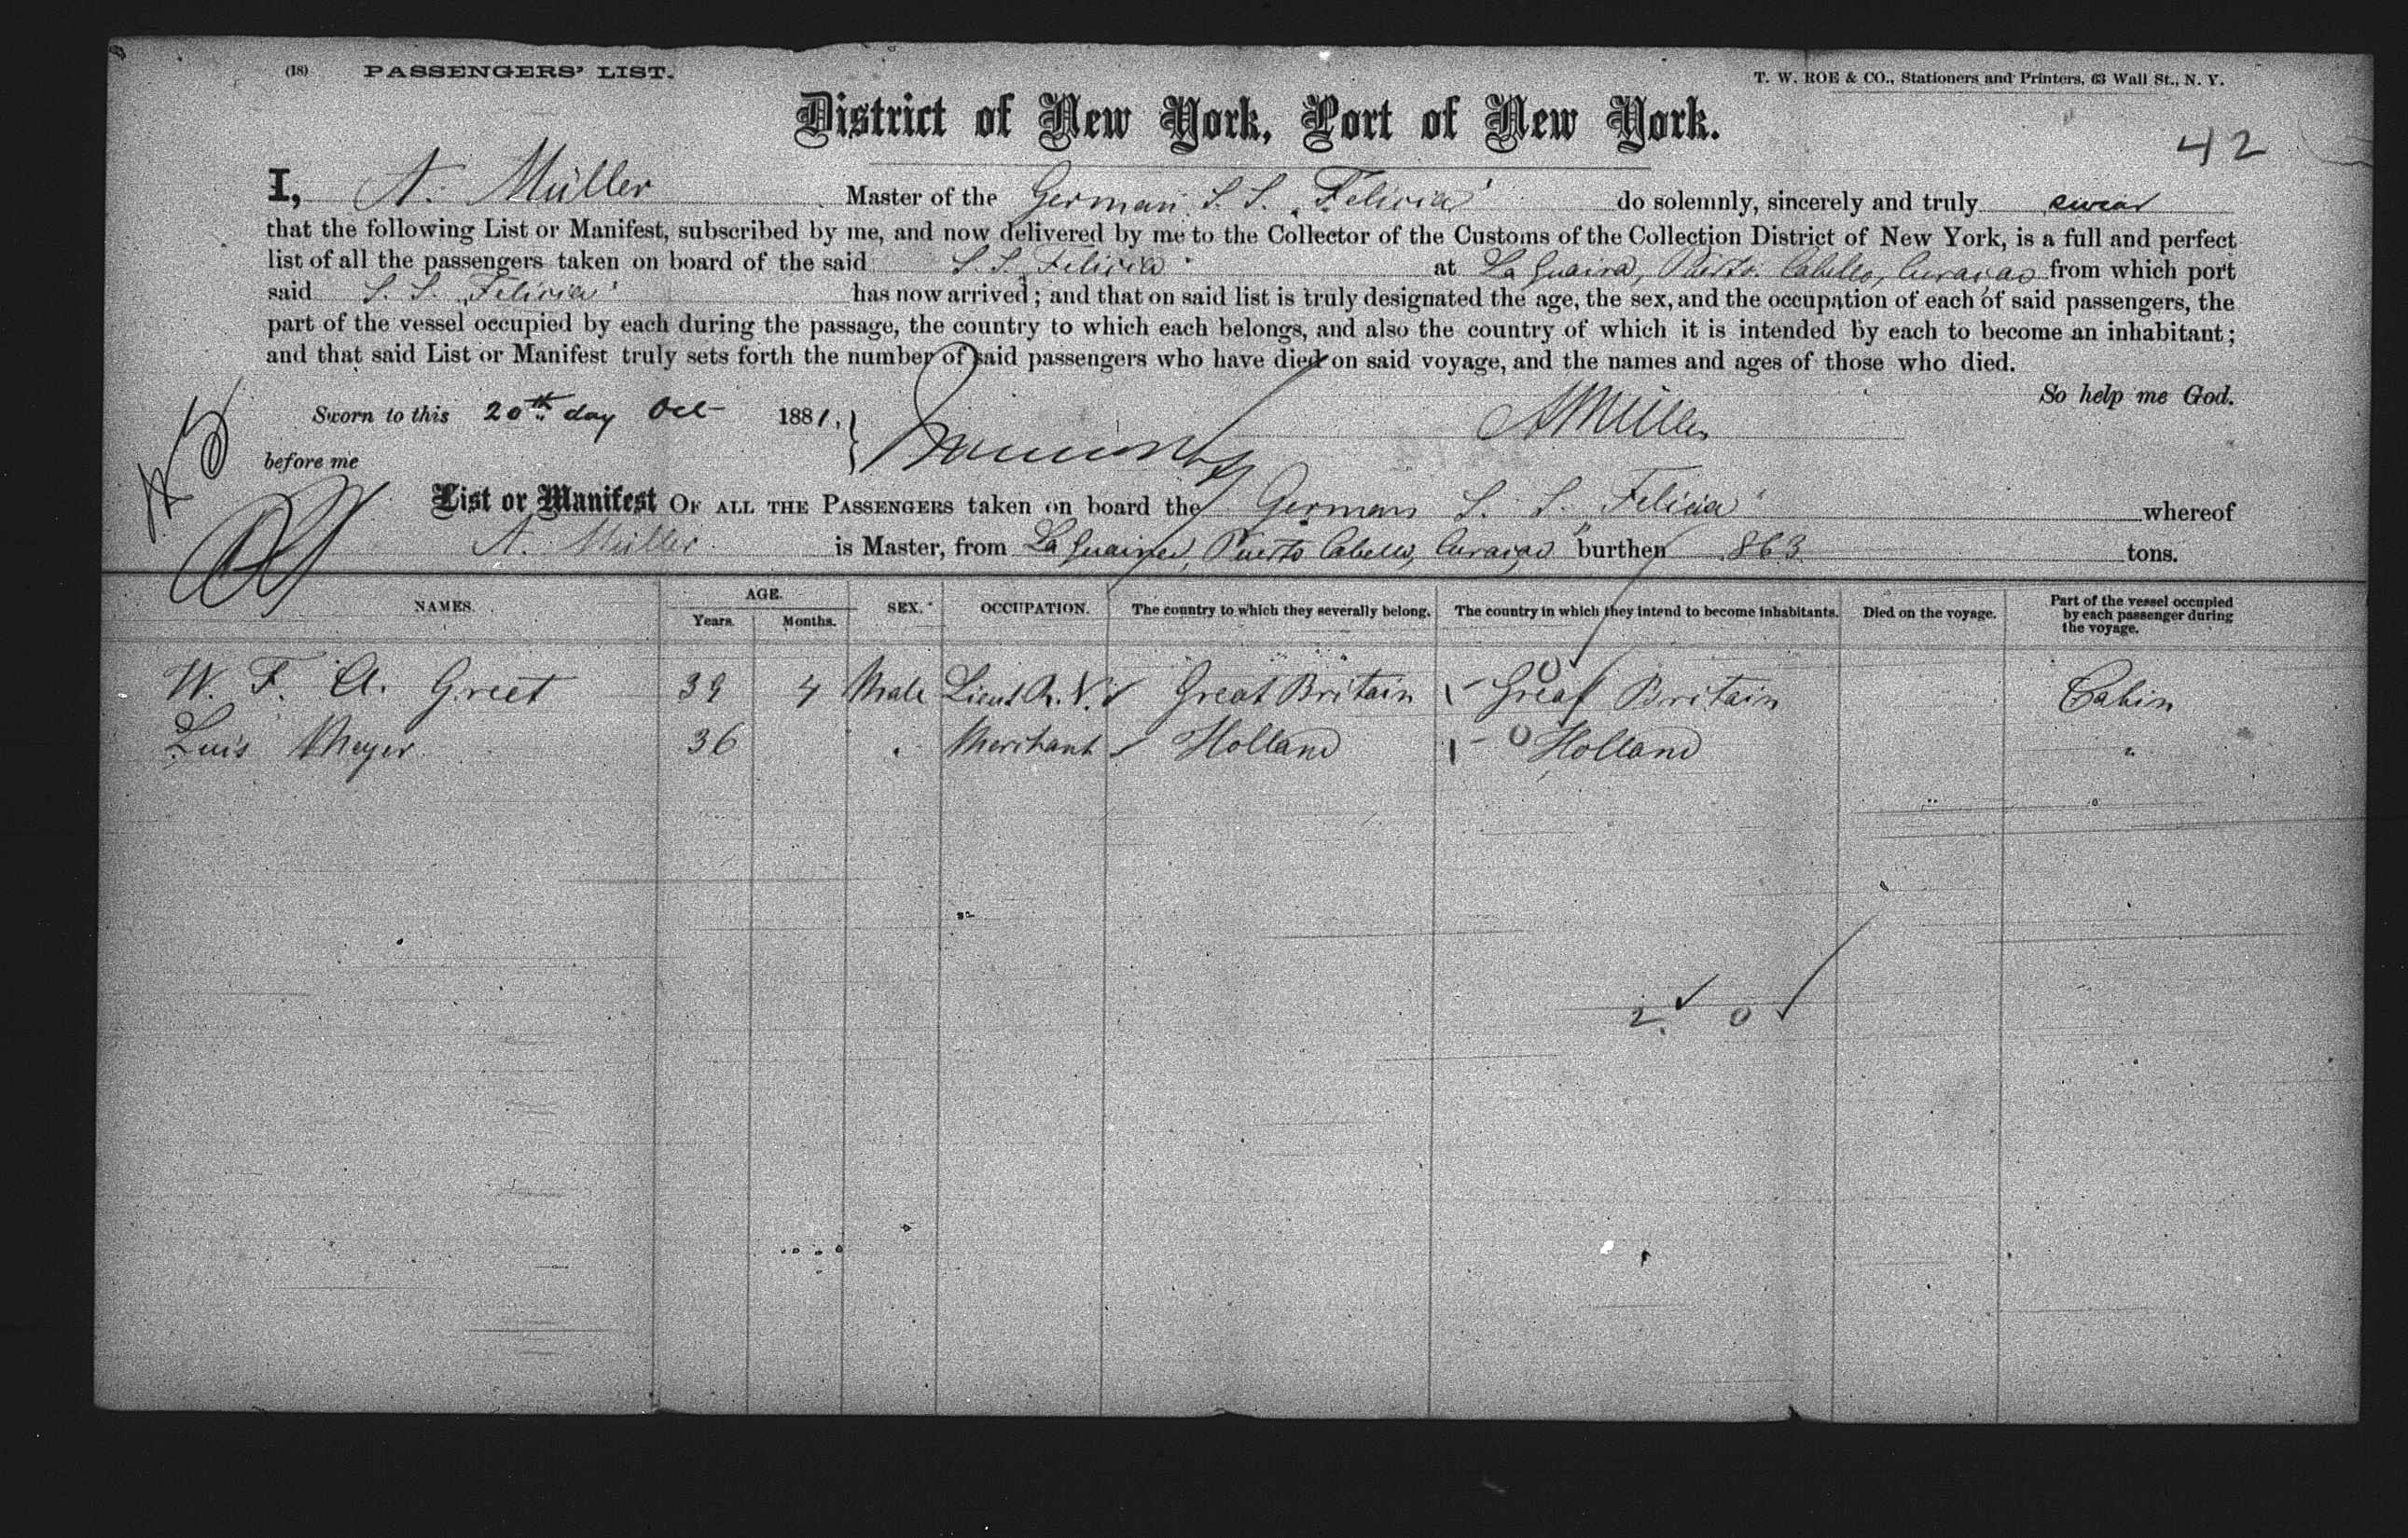 (18) PASSENGERS' LIST.
T. W. ROE & CO., Stationers and Printers, 63 Wall St., N. Y.
District of New York, Port of New York.
42
I, A. Müller Master of the German S. S. „Felicia" do solemnly, sincerely and truly swear
that the following List or Manifest, subscribed by me, and now delivered by me to the Collector of the Customs of the Collection District of New York, is a full and perfect
list of all the passengers taken on board of the said S. S. „Felicia" at La Guaira, Puerto Cabello, Curaçao from which port
said S. S. „Felicia" has now arrived; and that on said list is truly designated the age, the sex, and the occupation of each of said passengers, the
part of the vessel occupied by each during the passage, the country to which each belongs, and also the country of which it is intended by each to become an inhabitant;
and that said List or Manifest truly sets forth the number of said passengers who have died on said voyage, and the names and ages of those who died.
So help me God.
Sworn to this 20th day Oct 1881,
A Müller
before me
List or Manifest OF ALL THE PASSENGERS taken on board the German S. S. „Felicia" whereof
A. Müller is Master, from La Guaira, Puerto Cabello, Curaçao burthen 863 tons.
NAMES. AGE. Years. Months. SEX. OCCUPATION. The country to which they severally belong. The country in which they intend to become inhabitants. Died on the voyage. Part of the vessel occupied by each passenger during the voyage.
W. F. A. Greet 39 4 Male Lieut R. N. Great Britain Great Britain Cabin
Luis Meyer 36 " Merchant Holland Holland "
2 0